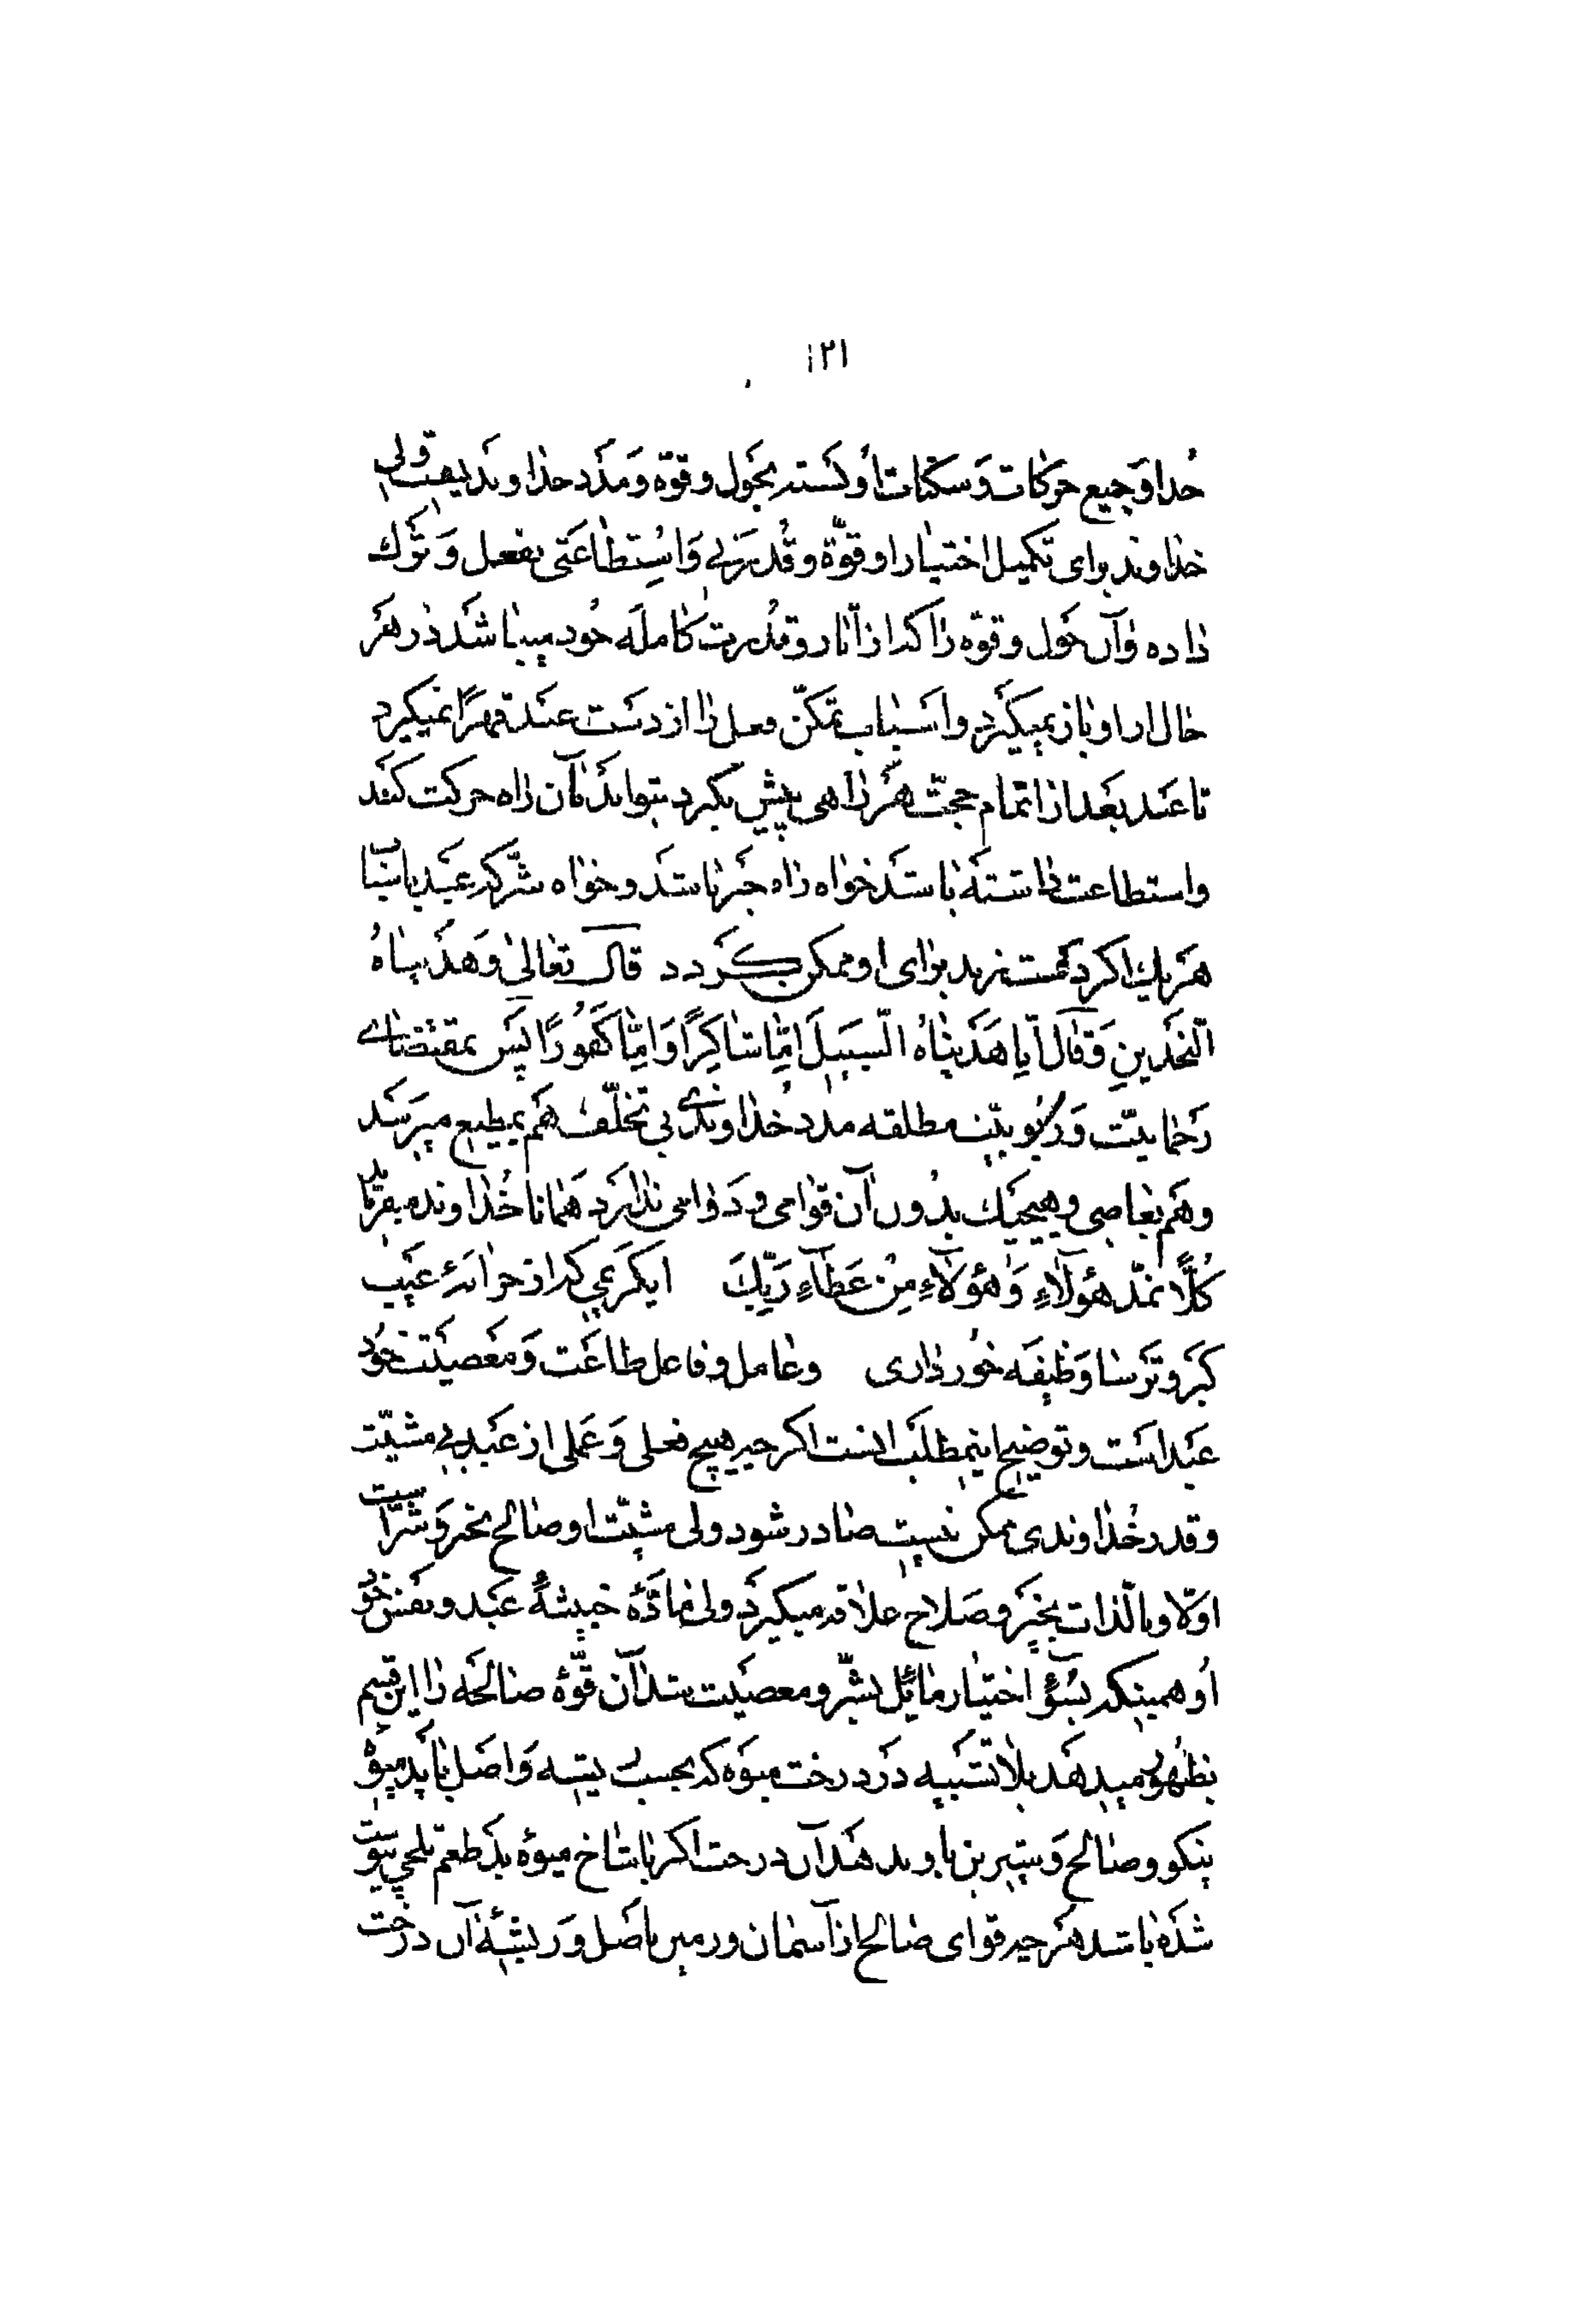 ۱۲۱
خدا و جمیع حرکات و سکنات او نسبتد بحول و قوّه و مدد خداوندیست ولی
خداوند برای تکمیل اختیار او قوّة و قدرتی و استطاعتی بفعل و ترک
داده و آن حول و قوّه را که از آثار و قدرت کامله خود میباشد در هر
حال از او باز نمیگیرد و اسباب تمکّن فعل را از دست عبد قهرًا نمیگیرد
تا عبد بعد از اتمام حجت هر راهی پیش بگیرد بتواند بآن راه حرکت کند
و استطاعت داشته باشد خواه راه خیر باشد و خواه شرّ که عبد باسباب
هر یک اگر دست بزند برای او ممکن بگردد قال تعالی وَهَدَیناهُ
النّجَدَینِ وَ قالَ اِنّا هَدَیناهُ السّبیلَ اِمّا شاکِرًا وَ اِمّا کَفُورًا پس بمقتضای
رحمانیّت و ربوبیّت مطلقه مدد خداوندی بی تخلّف هم بمطیع میرسد
و هم بعاصی و هیچیک بدون آن قوامی و دوامی ندارد همانا خداوند میفرماید
کُلًّا نمدّ هؤلاءِ وَ هؤلاءِ مِن عَطآءِ رَبِّکَ ایکریمی که از خزانهٔ غیب
گبر و ترسا وظیفه خور داری و عامل و فاعل طاعت و معصیت خود
عبد است و توضیح اینمطلب انست اگر چه هیچ فعلی و عملی از عبد بی مشیّت
و قدر خداوندی ممکن نیست صادر شود ولی مشیّت او صالح بخیر و شرّ است
اوّلا و بالذات بخیر و صلاح علاقه میگیرد ولی مادّهٔ خبیثهٔ عبد و نفس خود
او همینکه بسؤ اختیار مائل بشرّ و معصیت شد آن قوّهٔ صالحه را این قسم
بظهور میدهد بلا تشبیه در درخت میوه که بحسب ریشه و اصل باید میوهٔ
نیکو و صالح و شیرین باو بدهد آن درخت اگر با شاخ میوهٔ بد طعم تلخی پیوست
شده باشد هر چه قوای صالح از آسمان و زمین باصل و ریشهٔ آن درخت